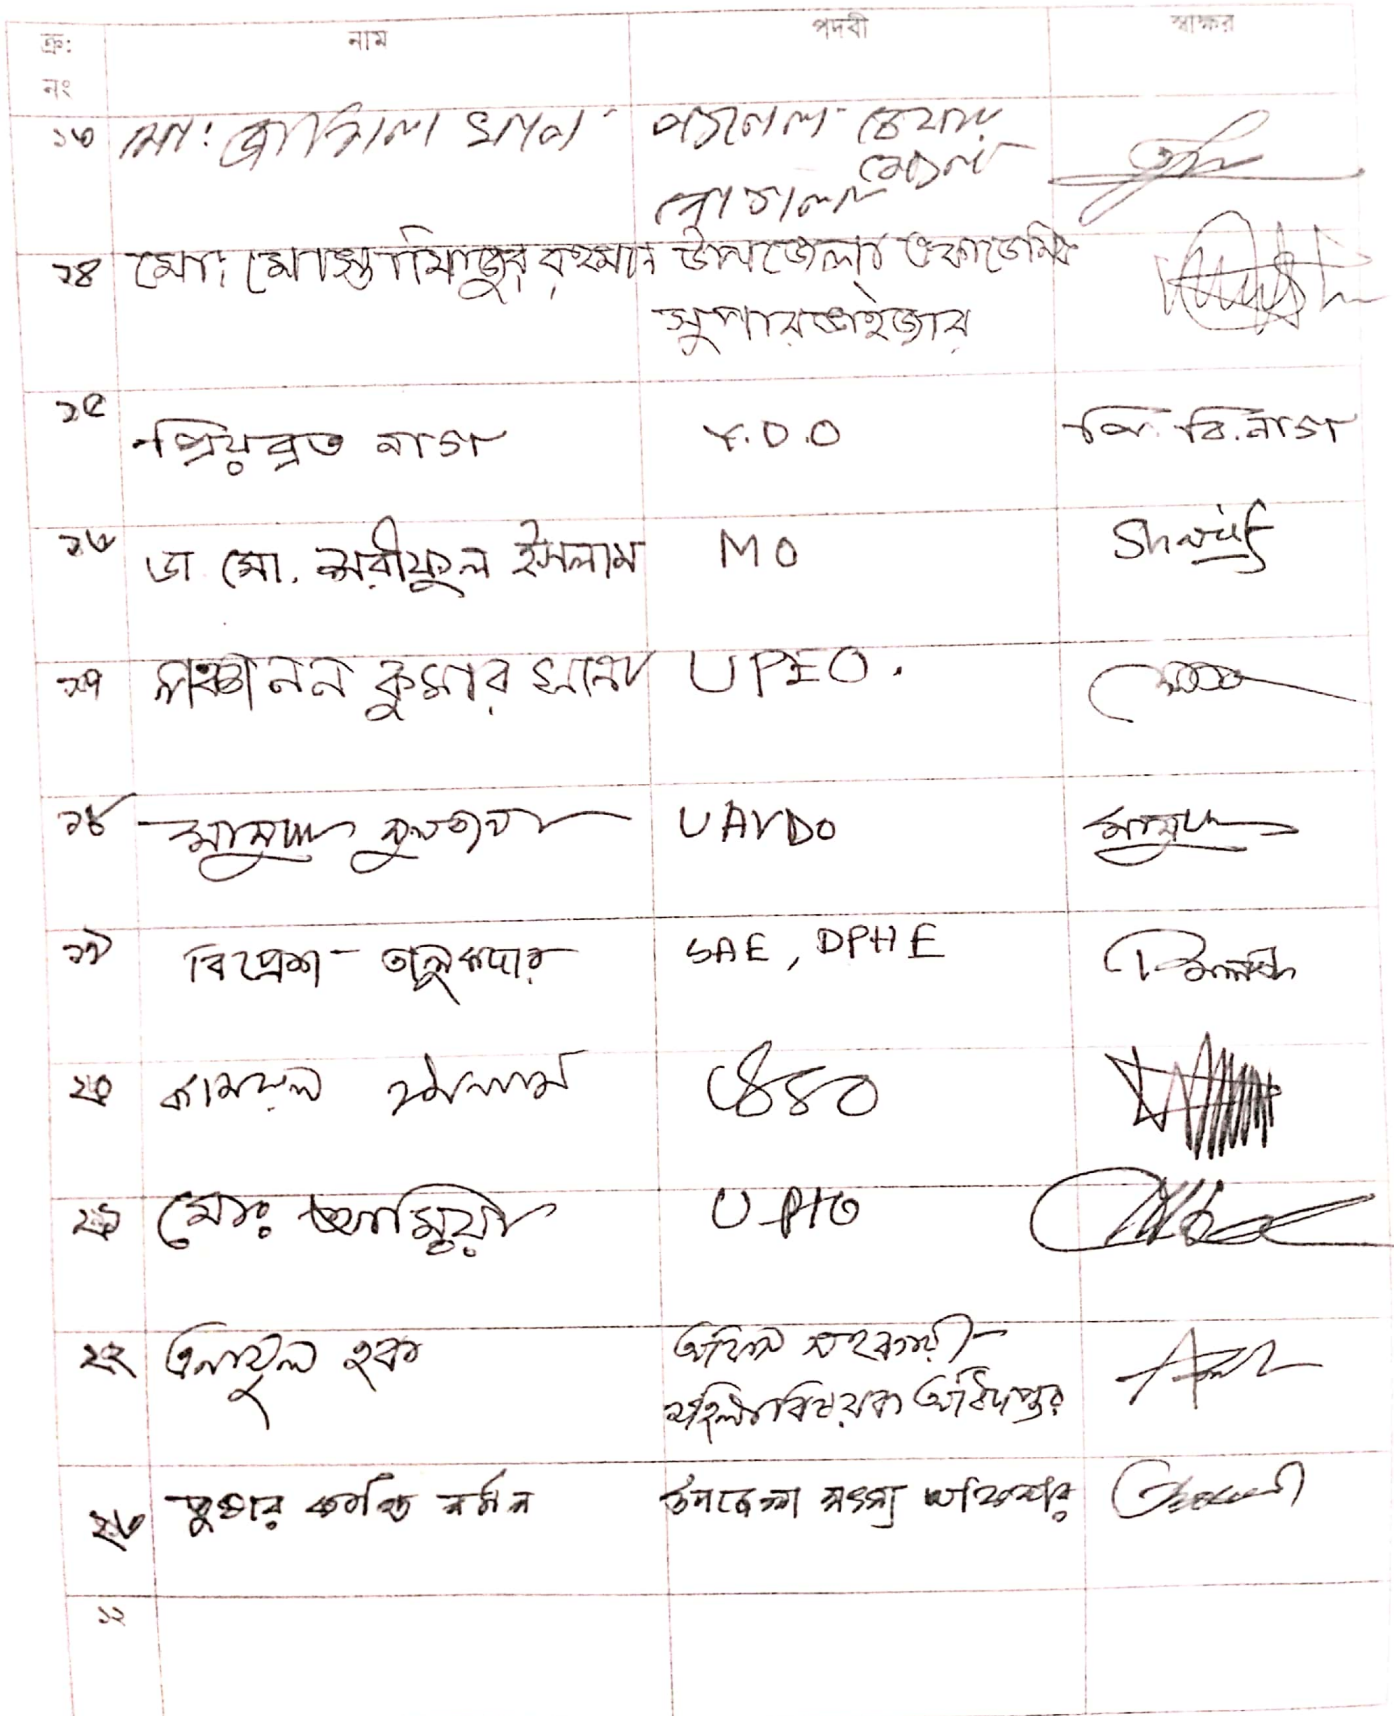 ক্র: নং নাম পদবী স্বাক্ষর
১৩ মো: জামিল খান প্যানেল চেয়ার
১৪ মো: মোস্তাফিজুর রহমান উপজেলা একাডেমিক
সুপারভাইজার
১৫ প্রিয়ব্রত নাগ Y.D.O পি. বি. নাগ
১৬ ডা. মো. শরীফুল ইসলাম MO Sharif
১৭ পঞ্চানন কুমার সানা UPEO.
১৮ মাসুমা সুলতানা UAVDO মাসুমা
১৯ বিপ্রেশ তালুকদার SAE, DPHE
২০ কামরুল ইসলাম
২১ মোঃ UPIO
২২ এনামুল হক অফিস সহকারী
মহিলা বিষয়ক অধিদপ্তর
২৩ তুষার কান্তি বর্মন উপজেলা মৎস্য অফিসার
১২